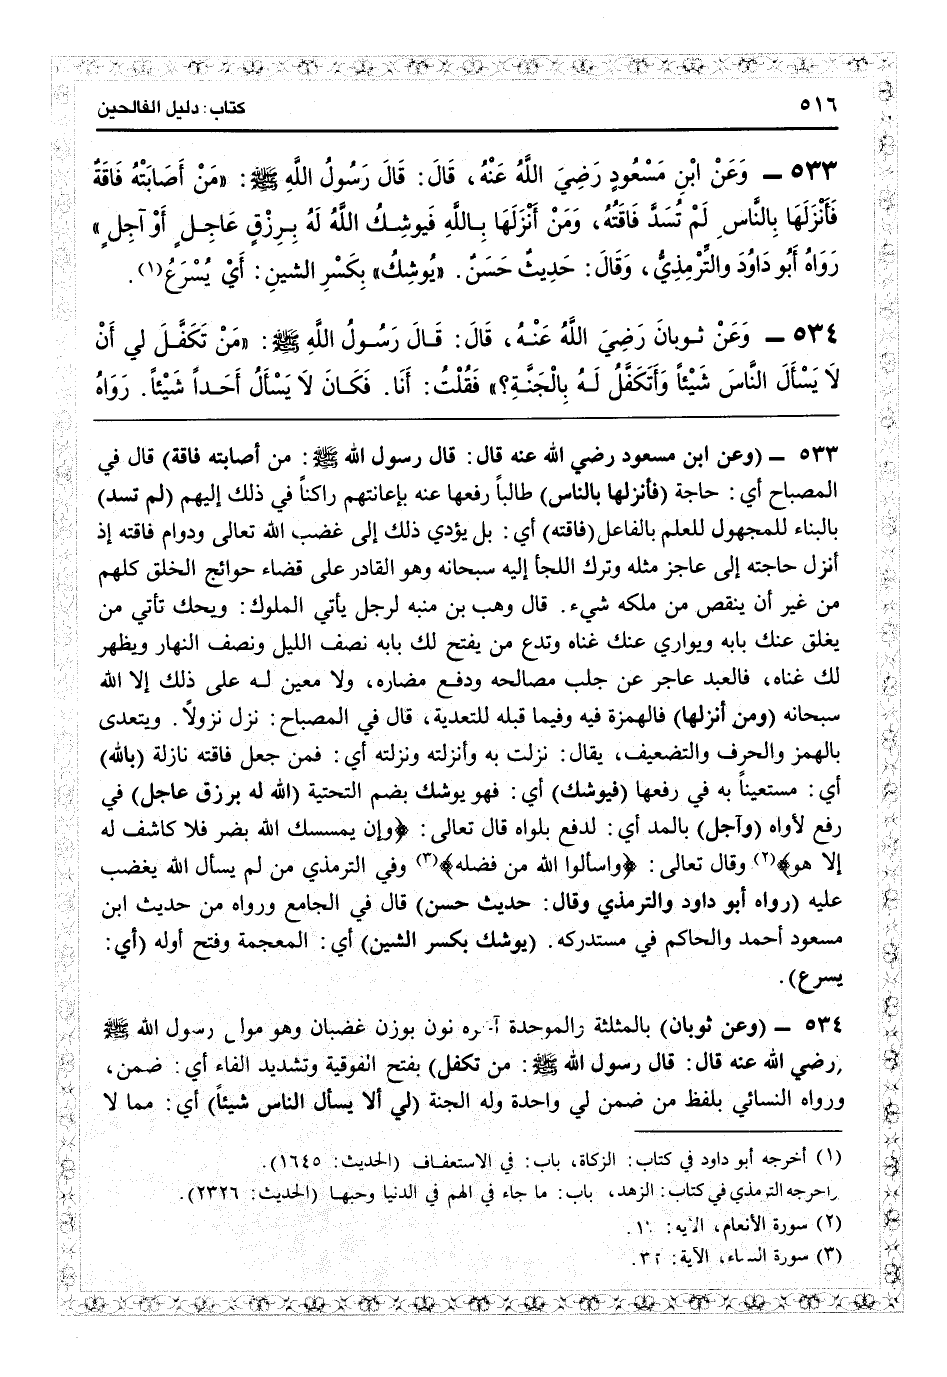 ٥١٦
كتاب: دليل الفالحين
٥٣٣ ــ وَعَنْ ابْنِ مَسْعُودٍ رَضِيَ اللَّهُ عَنْهُ، قَالَ: قَالَ رَسُولُ اللَّهِ ﷺ: «مَنْ أَصَابَتْهُ فَاقَةٌ
فَأَنْزَلَهَا بِالنَّاسِ لَمْ تُسَدَّ فَاقَتُهُ، وَمَنْ أَنْزَلَهَا بِاللَّهِ فَيوشِكُ اللَّهُ لَهُ بِرِزْقٍ عَاجِلٍ أَوْ آجِلٍ»
رَوَاهُ أَبُو دَاوُدَ والتِّرْمِذِيُّ، وَقَالَ: حَدِيثٌ حَسَنٌ. «يُوشِكُ» بِكَسْرِ الشينِ: أَيْ يُسْرَعُ(١).
٥٣٤ ــ وَعَنْ ثوبانَ رَضِيَ اللَّهُ عَنْهُ، قَالَ: قَالَ رَسُولُ اللَّهِ ﷺ: «مَنْ تَكَفَّلَ لي أَنْ
لَا يَسْأَلَ النَّاسَ شَيْئاً وَأَتَكَفَّلُ لَهُ بِالْجَنَّةِ؟» فَقُلْتُ: أَنَا. فَكَانَ لَا يَسْأَلُ أَحَداً شَيْئاً. رَوَاهُ
٥٣٣ ــ (وعن ابن مسعود رضي الله عنه قال: قال رسول الله ﷺ: من أصابته فاقة) قال في
المصباح أي: حاجة (فأنزلها بالناس) طالباً رفعها عنه بإعانتهم راكناً في ذلك إليهم (لم تسد)
بالبناء للمجهول للعلم بالفاعل (فاقته) أي: بل يؤدي ذلك إلى غضب الله تعالى ودوام فاقته إذ
أنزل حاجته إلى عاجز مثله وترك اللجأ إليه سبحانه وهو القادر على قضاء حوائج الخلق كلهم
من غير أن ينقص من ملكه شيء. قال وهب بن منبه لرجل يأتي الملوك: ويحك تأتي من
يغلق عنك بابه ويواري عنك غناه وتدع من يفتح لك بابه نصف الليل ونصف النهار ويظهر
لك غناه، فالعبد عاجر عن جلب مصالحه ودفع مضاره، ولا معين له على ذلك إلا الله
سبحانه (ومن أنزلها) فالهمزة فيه وفيما قبله للتعدية، قال في المصباح: نزل نزولاً. ويتعدى
بالهمز والحرف والتضعيف، يقال: نزلت به وأنزلته ونزلته أي: فمن جعل فاقته نازلة (بالله)
أي: مستعيناً به في رفعها (فيوشك) أي: فهو يوشك بضم التحتية (الله له برزق عاجل) في
رفع لأواه (وآجل) بالمد أي: لدفع بلواه قال تعالى: ﴿وإن يمسسك الله بضر فلا كاشف له
إلا هو﴾(٢) وقال تعالى: ﴿واسألوا الله من فضله﴾(٣) وفي الترمذي من لم يسأل الله يغضب
عليه (رواه أبو داود والترمذي وقال: حديث حسن) قال في الجامع ورواه من حديث ابن
مسعود أحمد والحاكم في مستدركه. (يوشك بكسر الشين) أي: المعجمة وفتح أوله (أي:
يسرع).
٥٣٤ ــ (وعن ثوبان) بالمثلثة والموحدة آخره نون بوزن غضبان وهو مولى رسول الله ﷺ
رضي الله عنه قال: قال رسول الله ﷺ: من تكفل) بفتح الفوقية وتشديد الفاء أي: ضمن،
ورواه النسائي بلفظ من ضمن لي واحدة وله الجنة (لي ألا يسأل الناس شيئاً) أي: مما لا
(١) أخرجه أبو داود في كتاب: الزكاة، باب: في الاستعفاف (الحديث: ١٦٤٥).
وأخرجه الترمذي في كتاب: الزهد، باب: ما جاء في الهم في الدنيا وحبها (الحديث: ٢٣٢٦).
(٢) سورة الأنعام، الآية:
(٣) سورة النساء، الآية: ٣٢.